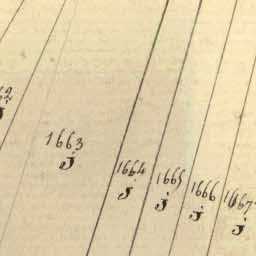 1663
J
1664
J
1665
J
1666
J
1667
J